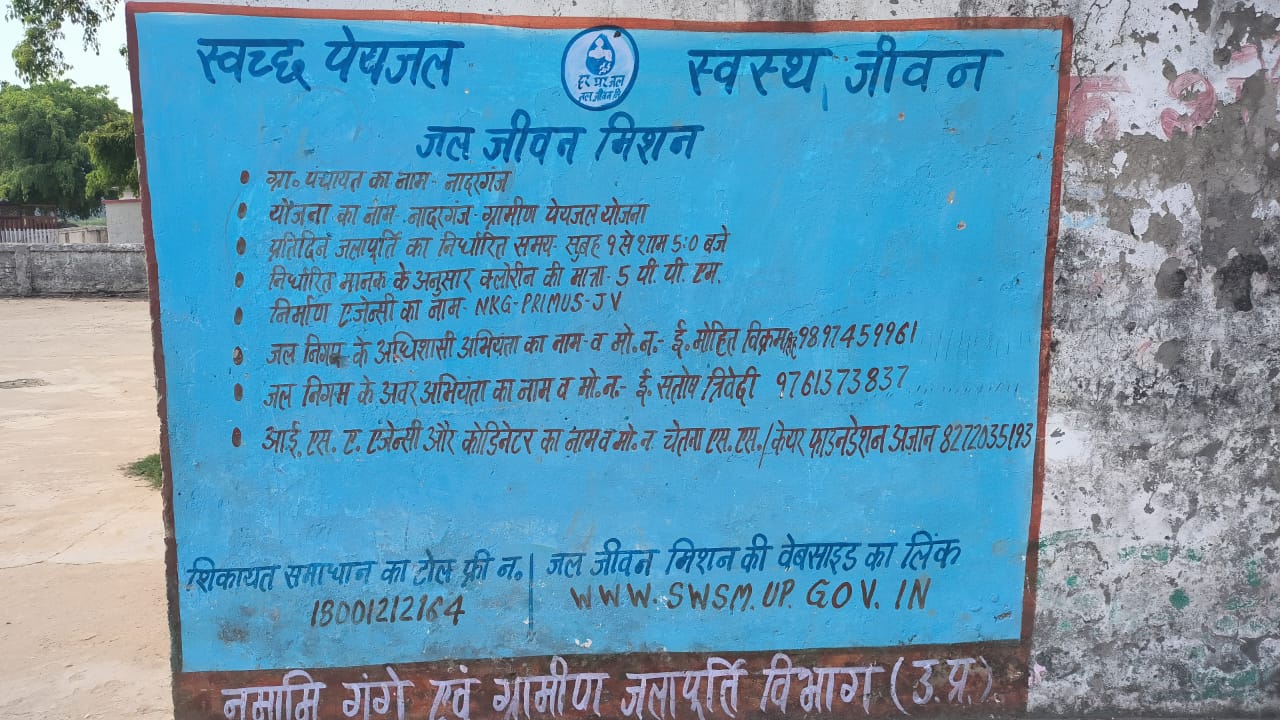 स्वच्छ पेयजल
हर घर जल
जल जीवन मि
स्वस्थ जीवन
जल जीवन मिशन
ग्रा. पंचायत का नाम- नादरगंज
योजना का नाम- नादरगंज- ग्रामीण पेयजल योजना
प्रतिदिन जलापूर्ति का निर्धारित समय- सुबह ९ से शाम 5:0 बजे
निर्धारित मानक के अनुसार क्लोरीन की मात्रा- 5 पी. पी. एम.
निर्माण एजेन्सी का नाम- NKG-PRIMUS-JV
जल निगम के अधिशासी अभियंता का नाम- व मो. न.- ई. मोहित विक्रम 9897459961
जल निगम के अवर अभियंता का नाम व मो. न.- ई. सतोष त्रिवेदी 9761373837
आई. एस. ए. एजेन्सी और कोडिनेटर का नाम व मो. न. चेतना एस. एस. / केयर फाउनडेशन अज़ान 8272035193
शिकायत समाधान का टोल फ्री न.
18001212164
जल जीवन मिशन की वेबसाइड का लिंक
WWW.SWSM.UP.GOV.IN
नमामि गंगे एवं ग्रामीण जलापूर्ति विभाग (उ.प्र.)